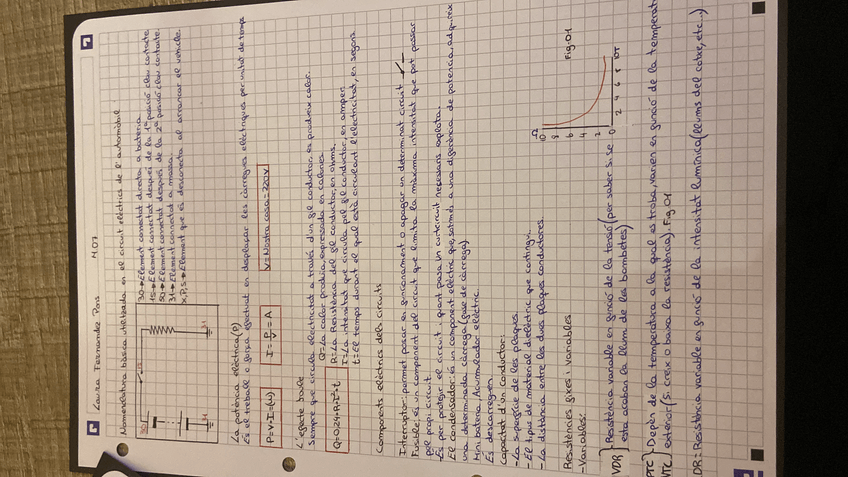 Laura Fernandez Pons M.07
Nomenclatura bàsica utilitzada en el circuit elèctrics de l'automòbil
30→Element connectat directa a bateria.
15→Element connectat després de la 1ª posició clau contacte.
50→Element connectat després de la 2ª posició clau contacte.
31→Element connectat a massa.
X,P,S→Element que es desconnecta al arrancar el vehicle.
30
31
31
La potència elèctrica(P)
És el treball o força efectuat en desplaçar les càrregues elèctriques per unitat de temps
P=V·I=(W)
I=P/V=A
V=Nostra casa=220V
L'efecte Joule
Sempre que circula electricitat a través d'un fil conductor, es produeix calor.
Q=La calor produïda, expressada en calories
R=La Resistència del fil conductor, en ohms.
I=La intensitat que circula pel fil conductor, en amper
t=El temps durant el qual està circulant l'electricitat, en segons
Q=0,24·R·I²·t
Components elèctrics dels circuits
Interruptor: permet posar en funcionament o apagar un determinat circuit
Fusible: és un component del circuit que limita la màxima intensitat que pot passar
pel propi circuit.
-És per protegir el circuit i quant passa un curtcircuit necessari explota.
El condensador: és un component elèctric que, sotmès a una diferència de potencia, adquireix
una determinada càrrega (fase de càrrega)
Mini bateria/Acumulador elèctric.
És descarreguen
Capacitat d'un conductor:
-La superfície de les plaques.
-El tipus de material dielèctric que contingui.
-La distància entre les dues plaques conductores.
Resistències fixes i variables
-Variables:
Ω
10
8
6
4
2
0
2 4 6 8 10T
Fig.01
VDR}Resistència variable en funció de la tensió (per saber si se
esta acaban la llum de les bombetes)
PTC}-Depèn de la temperatura a la qual es troba, varien en funció de la temperat
NTC exterior(Si creix o baixa la resistència). Fig 01
LDR=Resistència variable en funció de la intensitat lumínica(llums del cotxe, etc...)